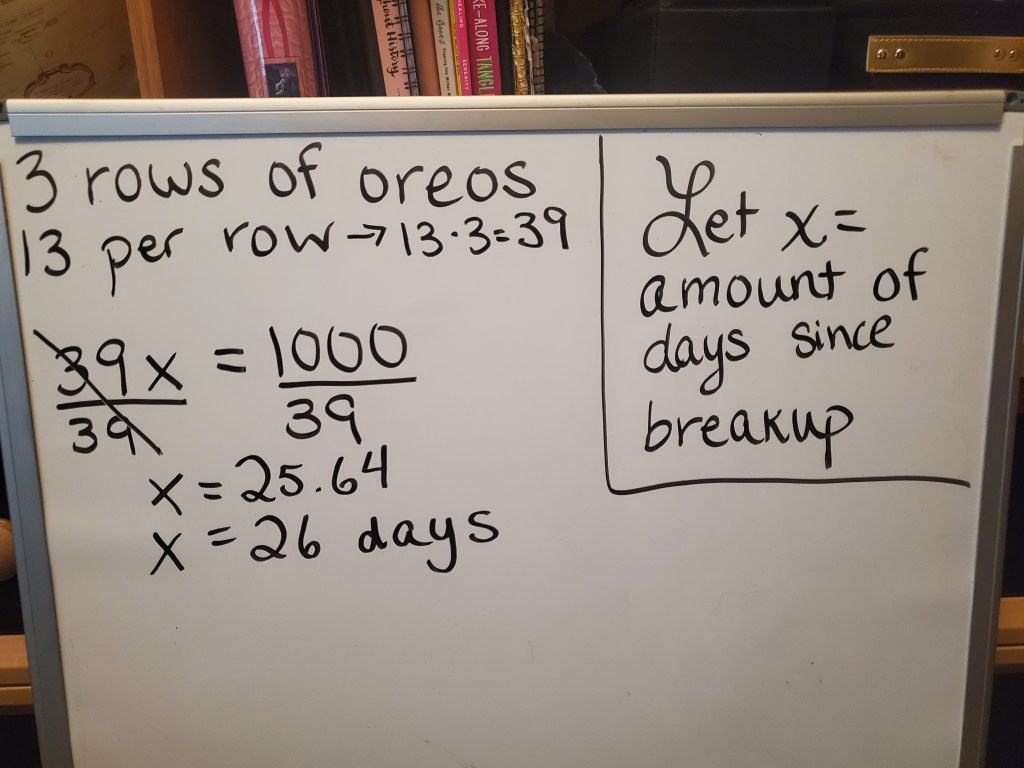 hout History
the Bees
HEALING
SERENITY
KE-ALONG TANGL
3 rows of oreos
13 per row → 13·3=39
39x = 1000
39 39
x = 25.64
x = 26 days
Let x =
amount of
days since
breakup